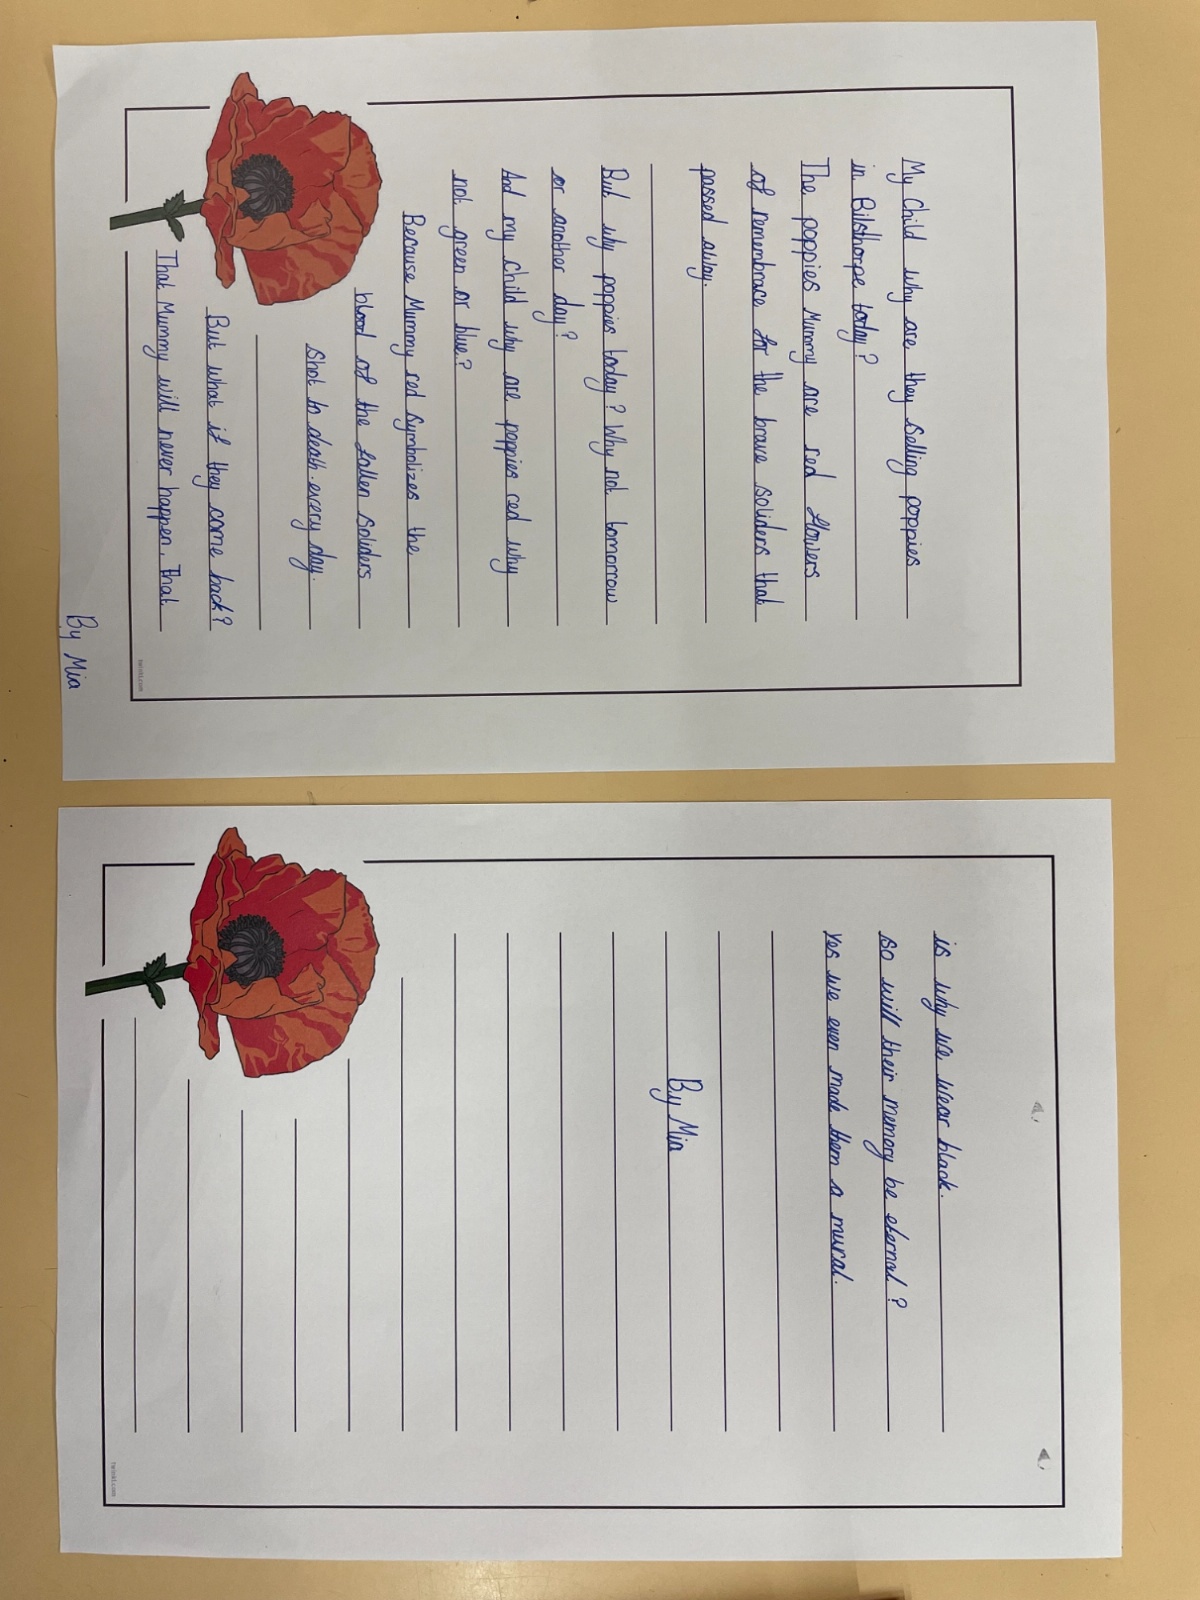 My Child why are they selling poppies
in Bilsthorpe today?
The poppies Mummy are red flowers
of remembrace for the brave soliders that
passed away.
But why poppies today? Why not tomorrow
or another day?
And my child why are poppies red why
not green or blue?
Because Mummy red symbolizes the
blood of the fallen soliders
shot to death every day.
But what if they come back?
That Mummy will never happen. That
twinkl.com
By Mia
is why we wear black.
so will their memory be eternal?
Yes we even made them a mural.
By Mia
twinkl.com